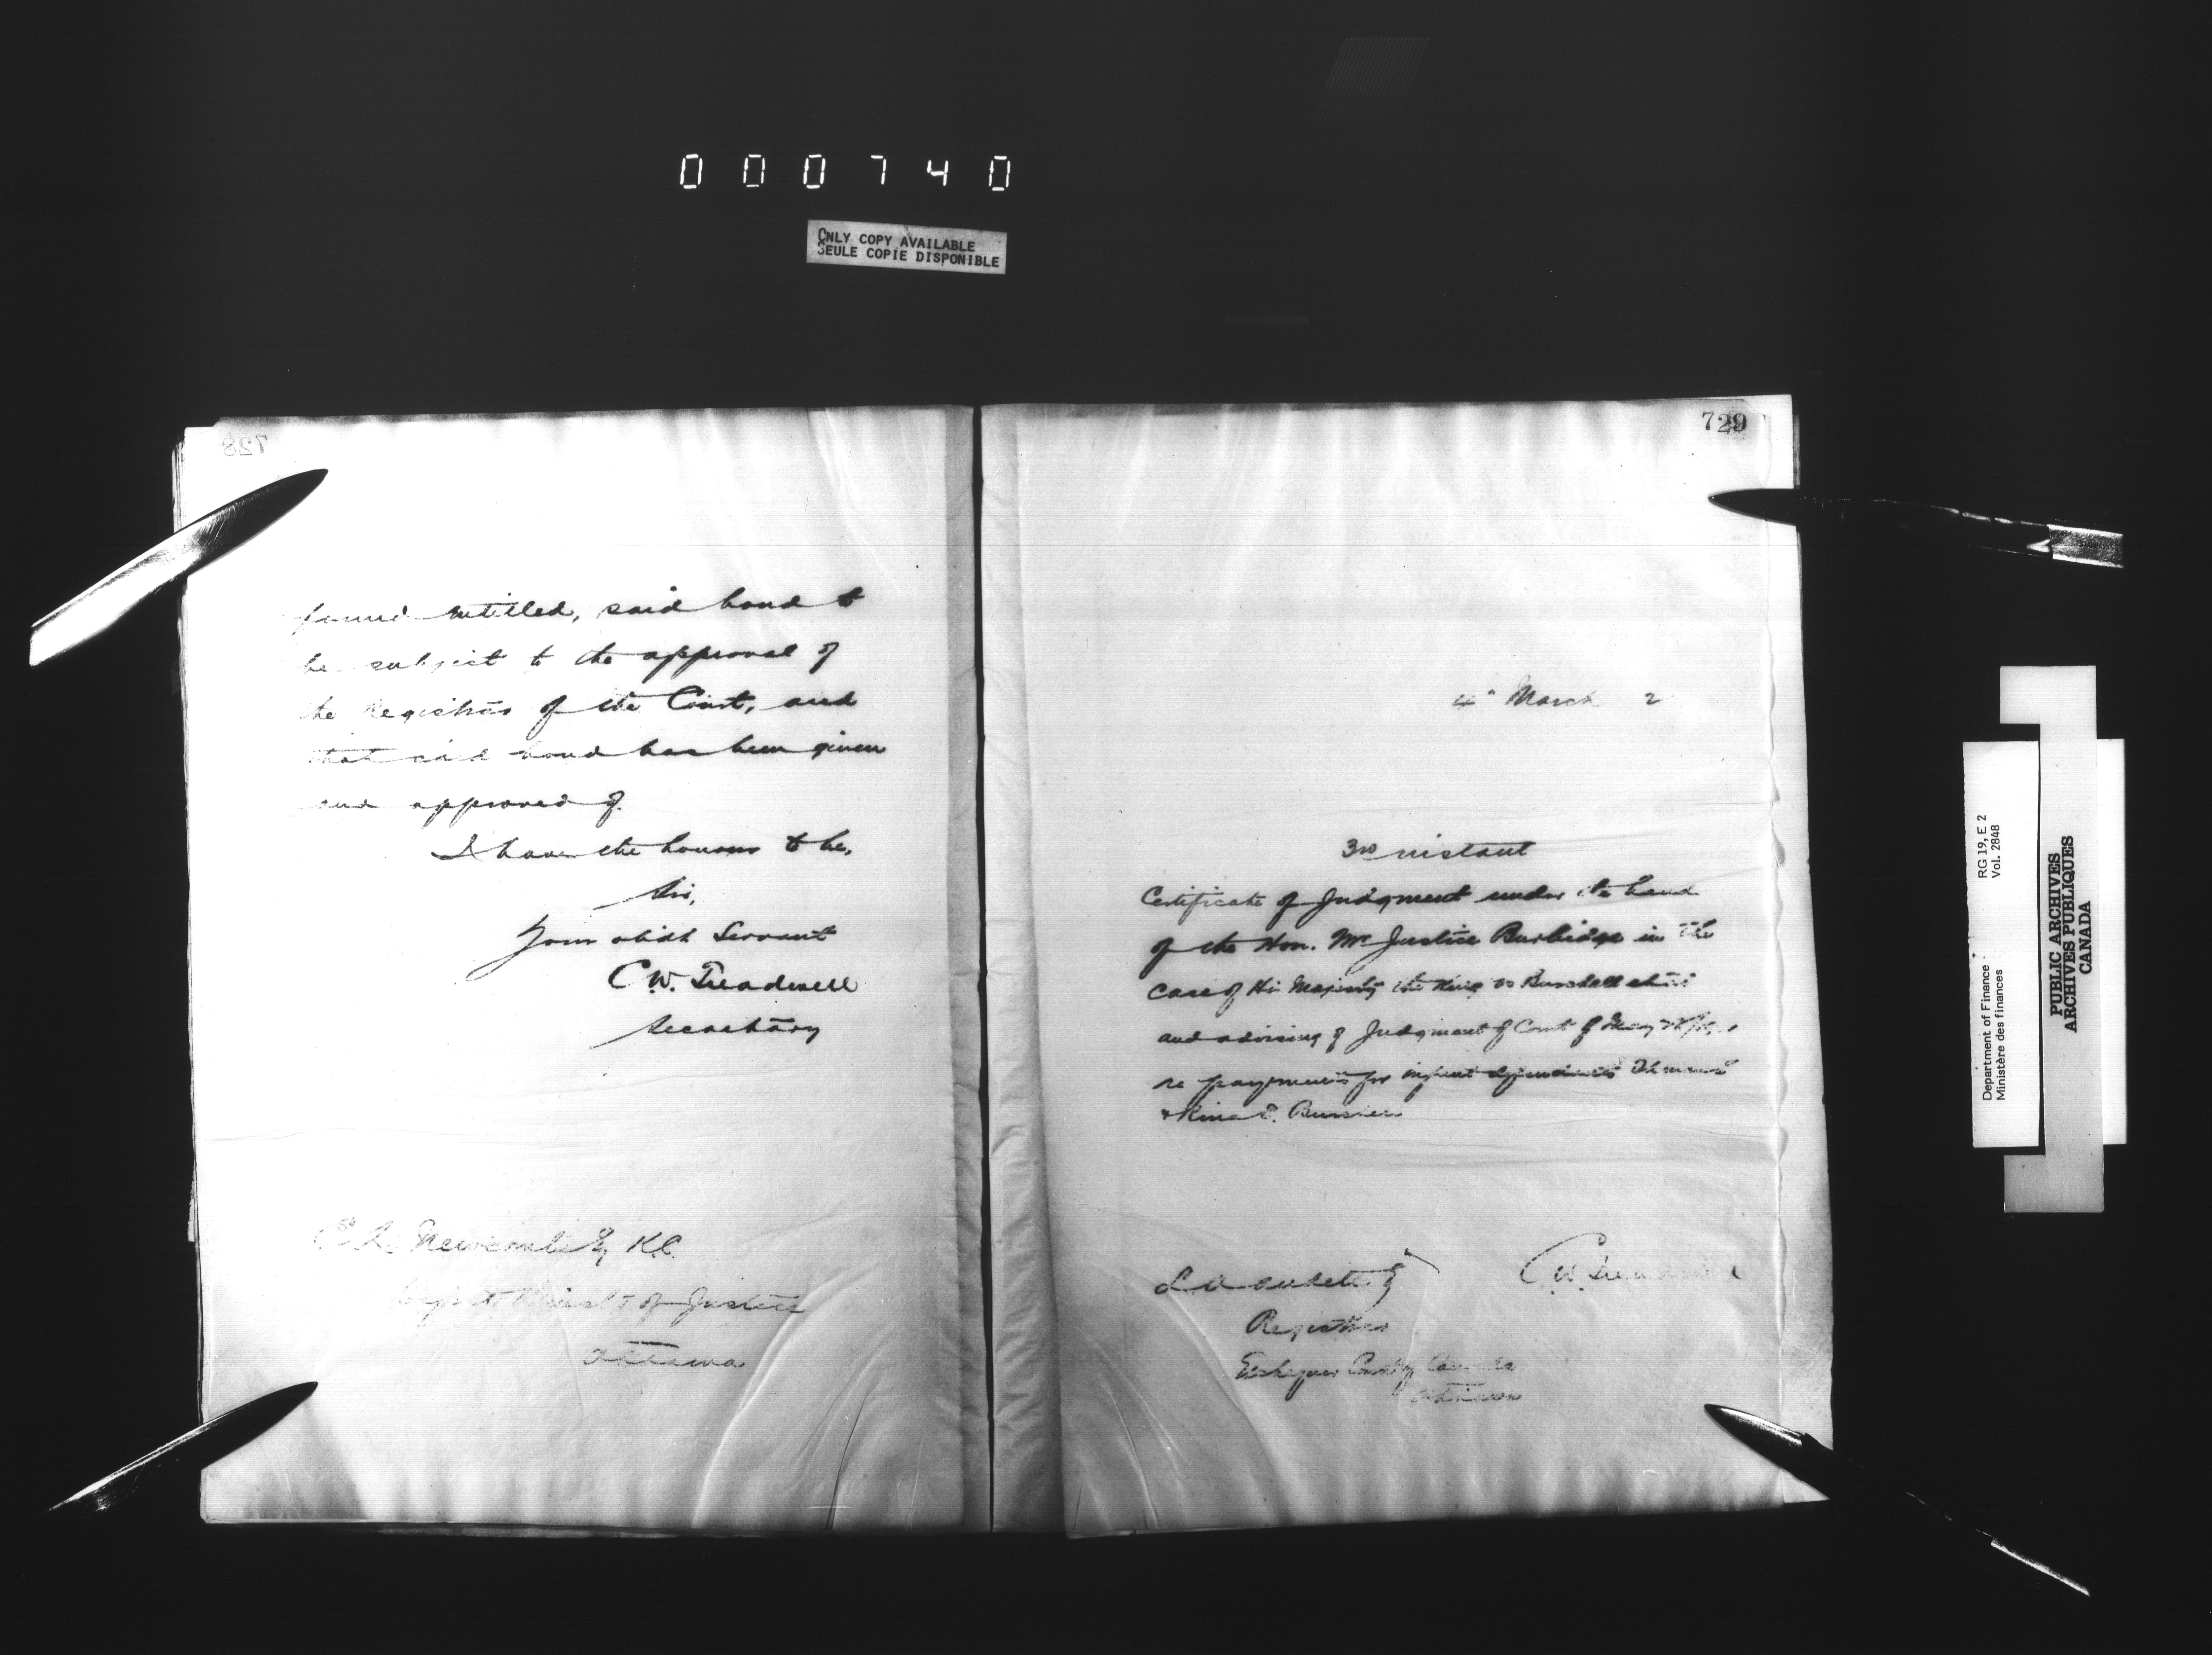 000740
ONLY COPY AVAILABLE
SEULE COPIE DISPONIBLE
728
found entitled, said bond to
be subject to the approval of
the Registrar of the Court, and
that said bond has been given
and approved of.
I have the honour to be,
Sir,
Your obdt Servant
C.W. Treadwell
Secretary
Newcombe Esq K.C.
Deputy Minister of Justice
Ottawa
729
4th March 2
3rd instant
Certificate of Judgment under the hand
of the Hon. Mr Justice Burbidge in the
case of His Majesty the King vs et al
and advising of Judgment of Court of
re payments for infant defendants
L A Audette Esq
C.W. Treadwell
Registrar
Exchequer Court of Canada
Ottawa
Department of Finance
Ministère des finances
RG 19, E 2
Vol. 2848
PUBLIC ARCHIVES
ARCHIVES PUBLIQUES
CANADA